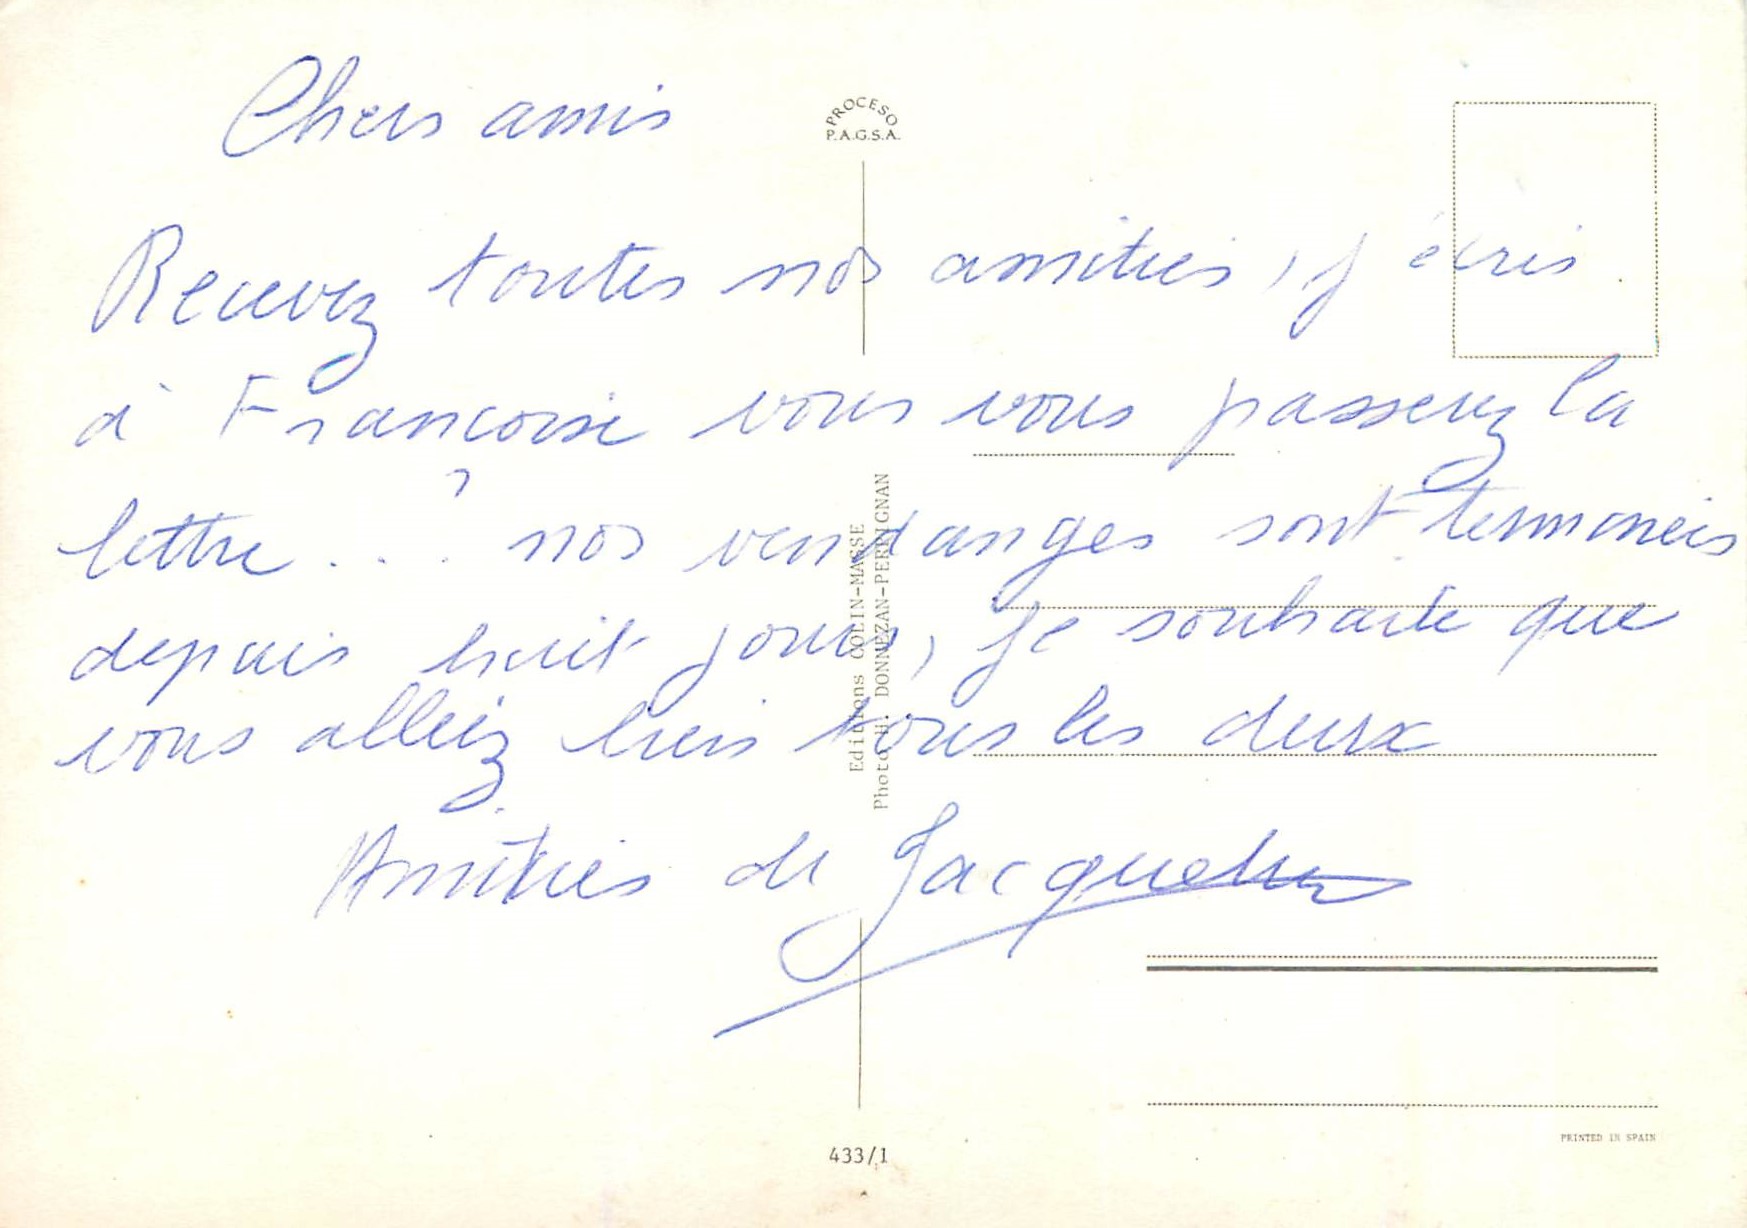 Chers amis
PROCESO
P.A.G.S.A.
Recevez toutes nos amitiés, j'écris
à Françoise vous vous passerez la
lettre...? nos vendanges sont terminées
depuis huit jours, je souhaite que
vous alliez bien tous les deux
Amitiés de Jacqueline
Editions COLIN-MASSE
Photo H. DONNEZAN-PERPIGNAN
433/1
PRINTED IN SPAIN